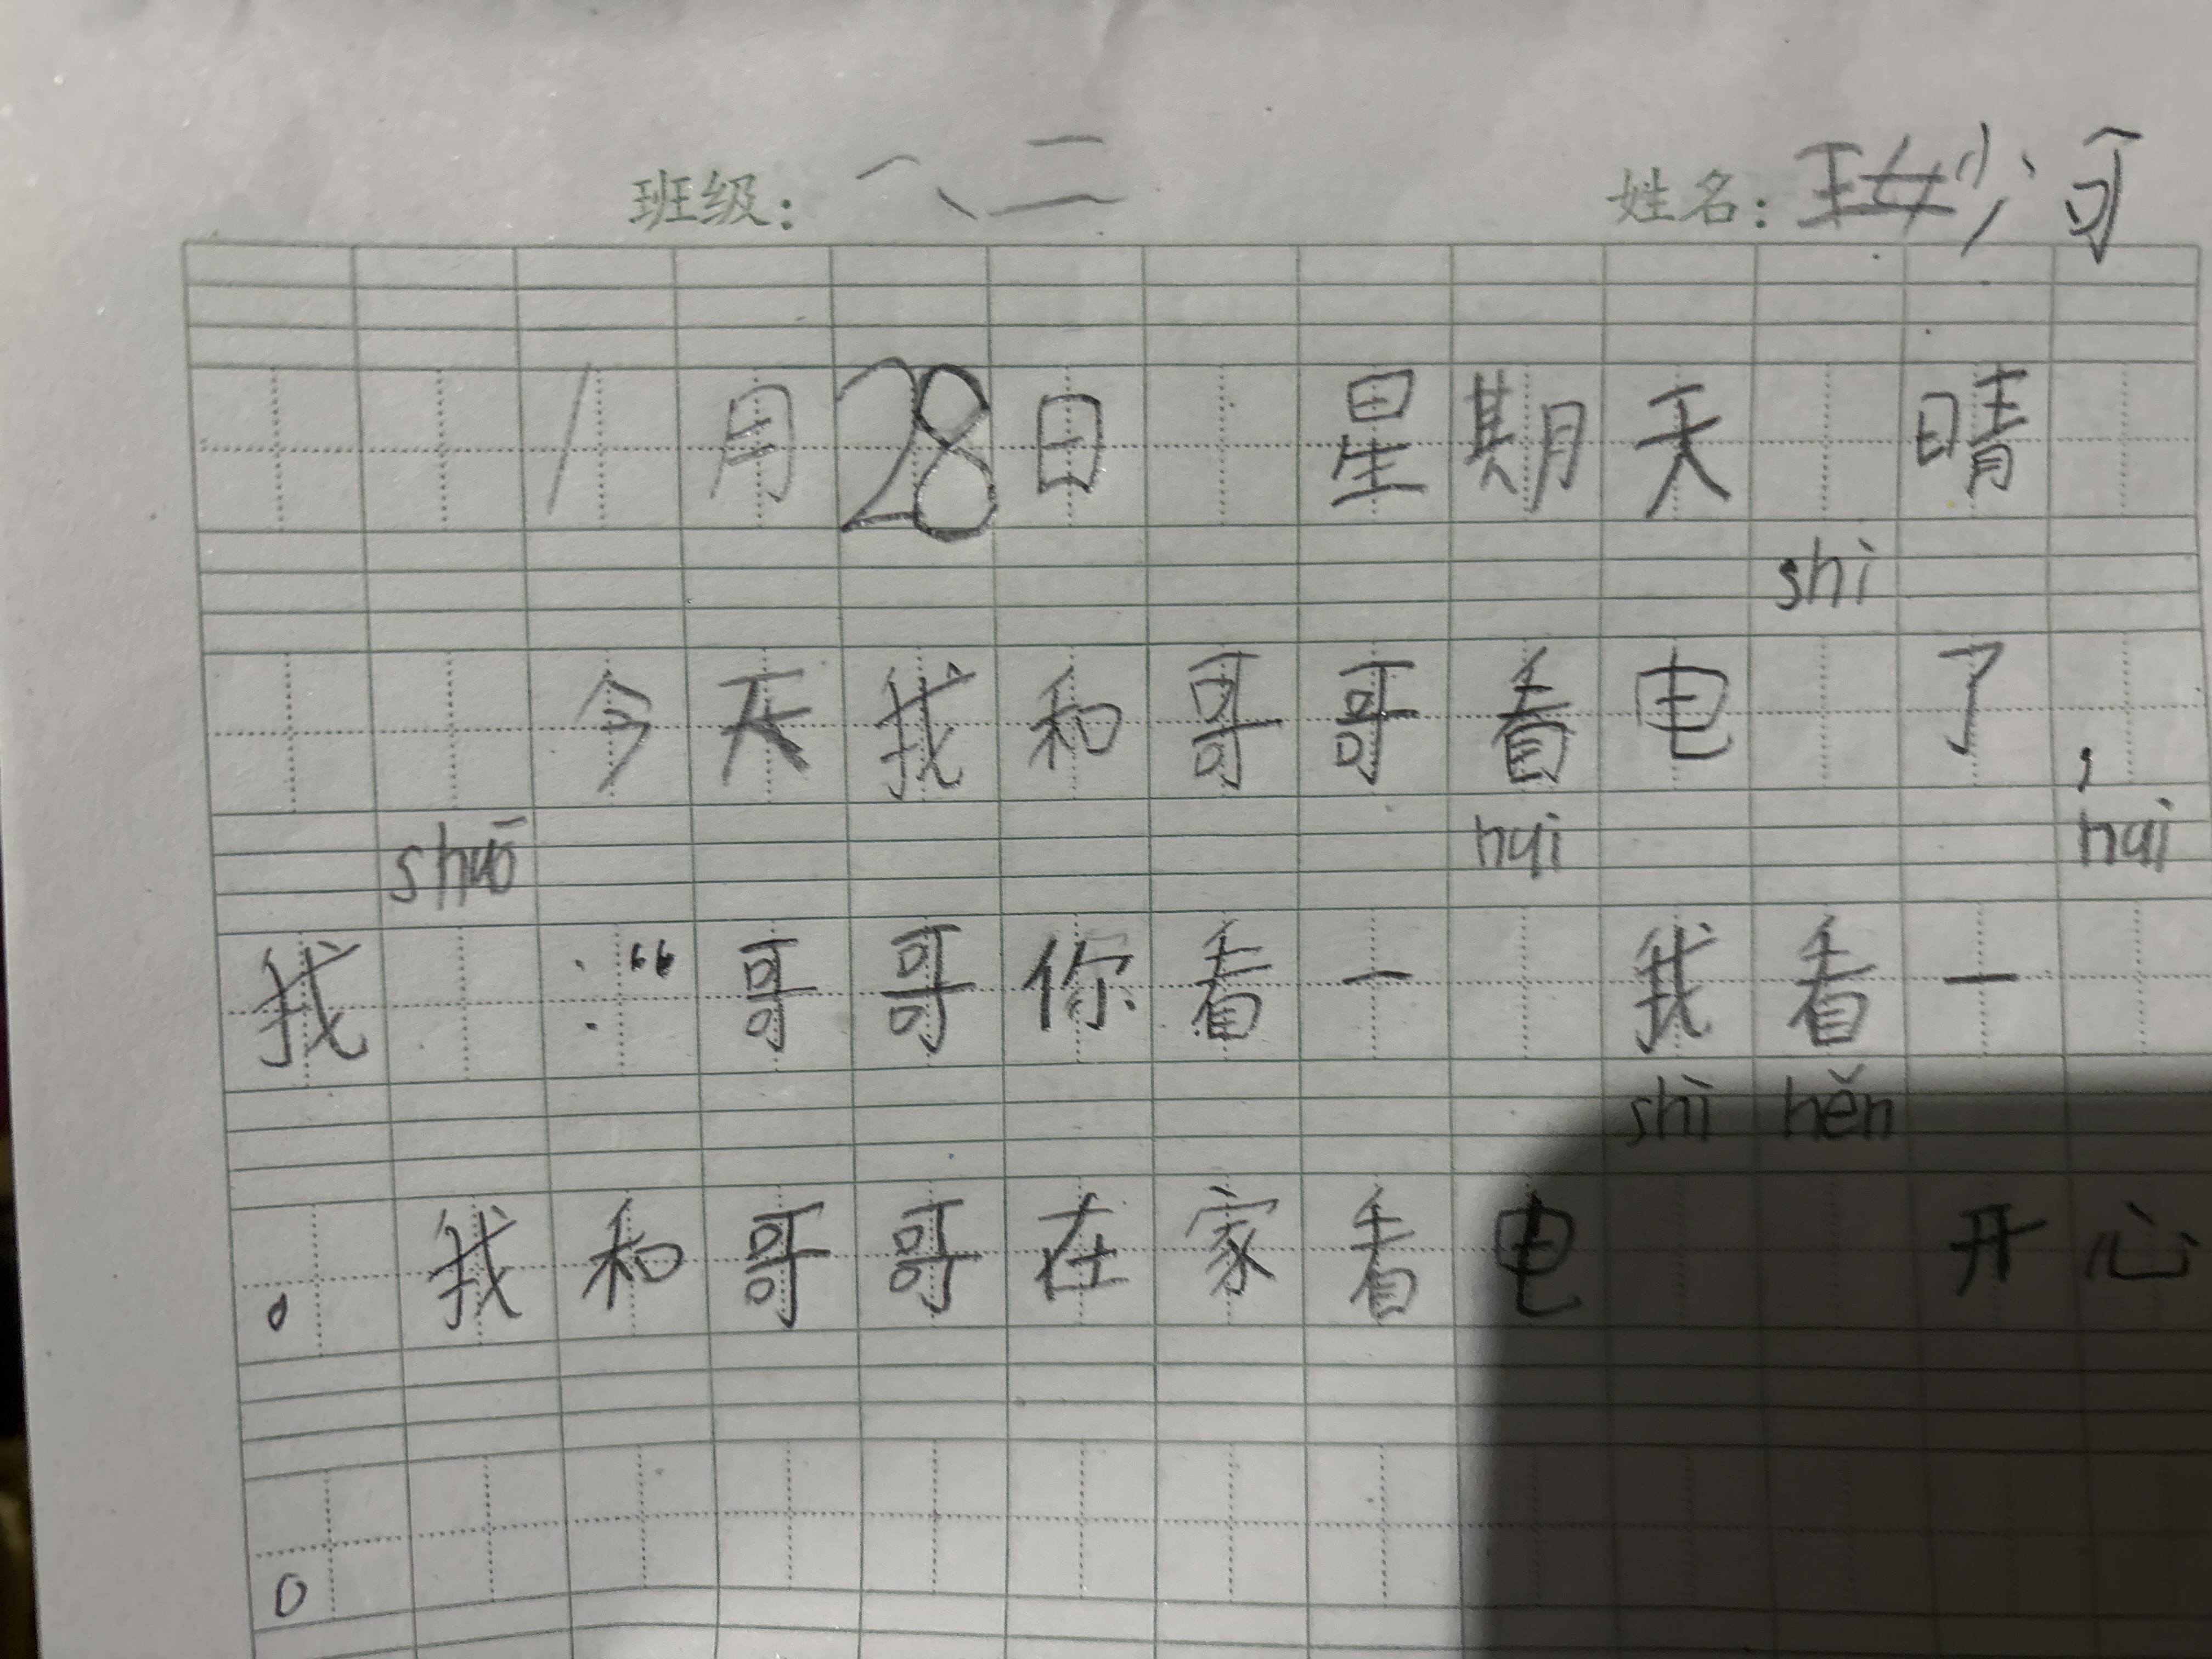 班级：一、二 姓名：王妙可
1月28日 星期天 晴
shì
今天我和哥哥看电 了，
shuō huì huì
我 ：“哥哥你看一 我看一
shì hěn
。我和哥哥在家看电 开心
。